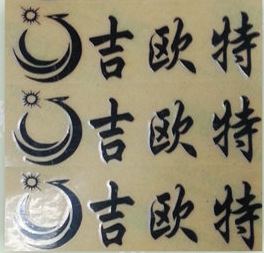 吉欧特
吉欧特
吉欧特